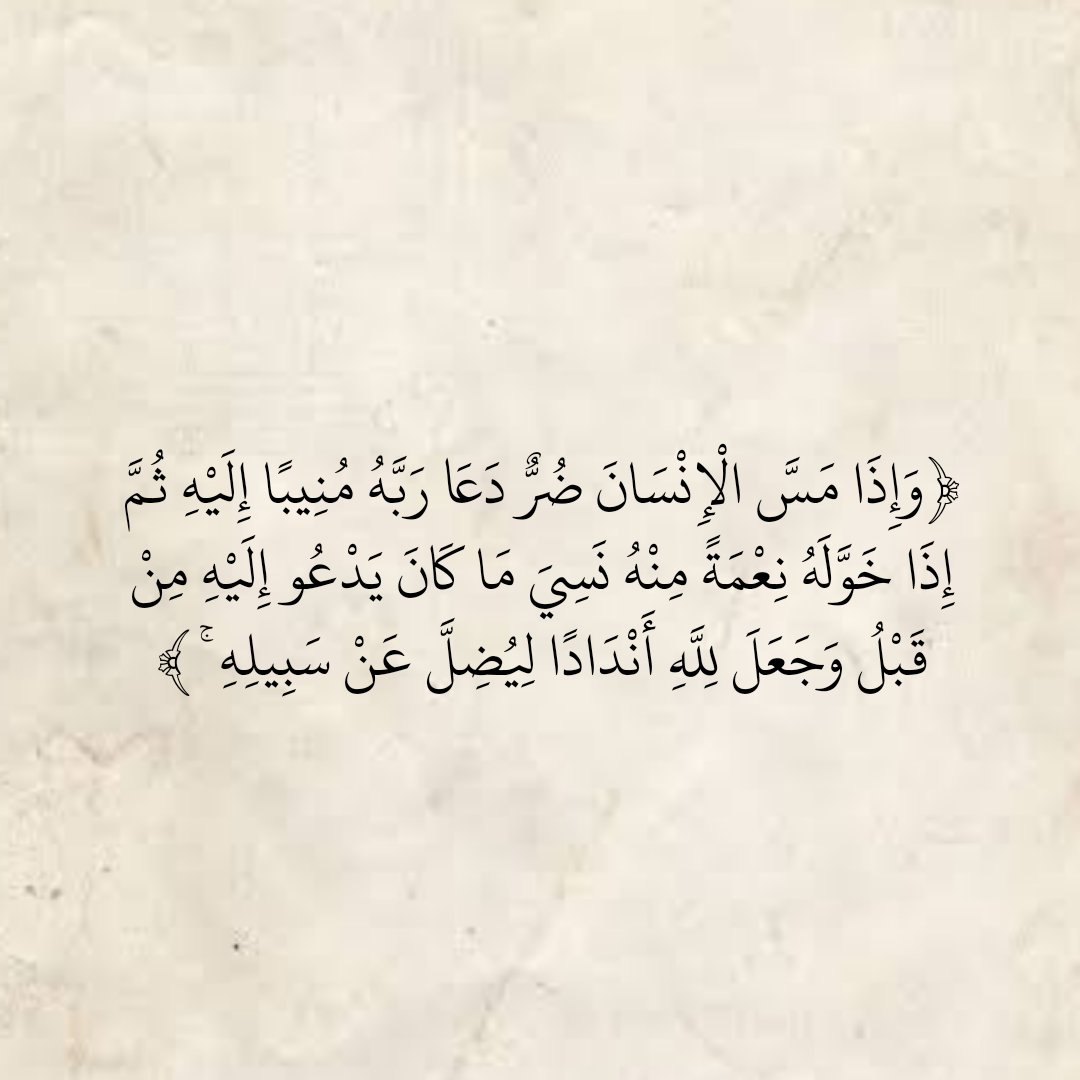 ﴿وَإِذَا مَسَّ الْإِنْسَانَ ضُرٌّ دَعَا رَبَّهُ مُنِيبًا إِلَيْهِ ثُمَّ
إِذَا خَوَّلَهُ نِعْمَةً مِنْهُ نَسِيَ مَا كَانَ يَدْعُو إِلَيْهِ مِنْ
قَبْلُ وَجَعَلَ لِلَّهِ أَنْدَادًا لِيُضِلَّ عَنْ سَبِيلِهِ ۚ ﴾